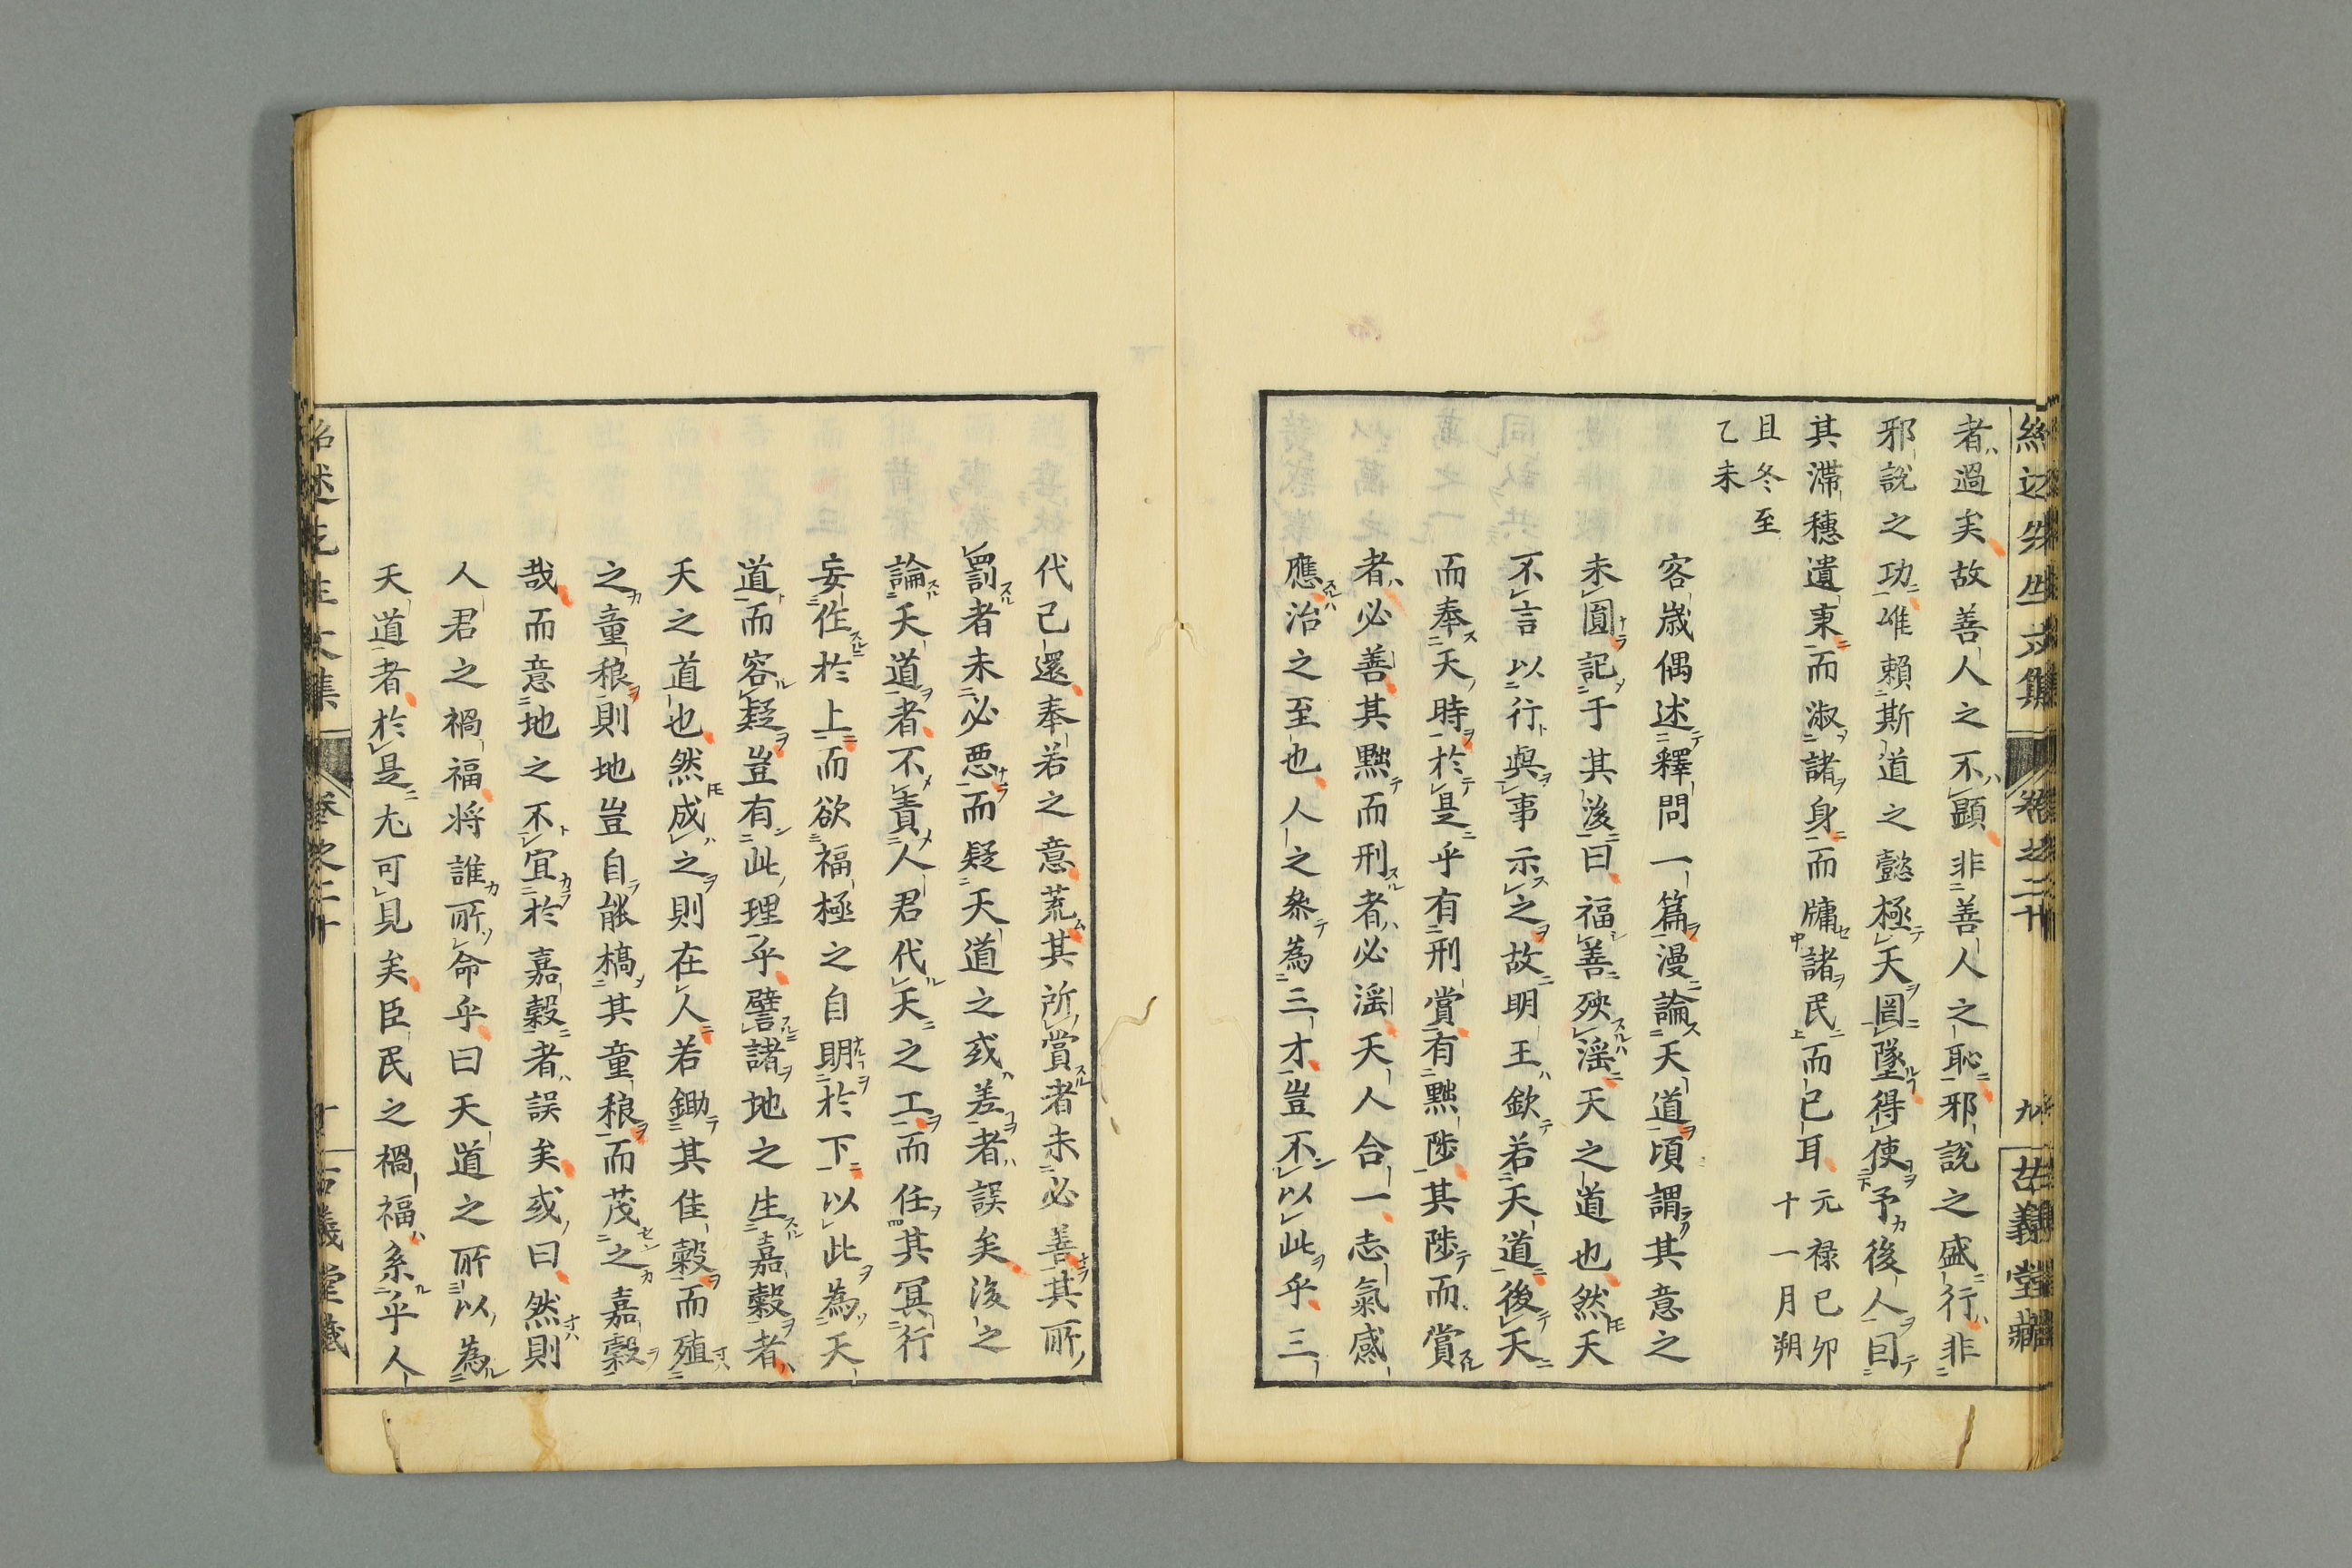 者過矣故善人之不顯非善人之恥邪說之盛行非
邪說之功唯賴斯道之懿極天罔墜得使予後人回
其滯穗遺秉而淑諸身而牖諸民而已耳元禄己卯十一月朔
且冬至
乙未
客歲偶述釋問一篇漫論天道頃謂其意之
未圓記于其後曰福善殃淫天之道也然天
不言以行與事示之故明王欽若天道後天
而奉天時於是乎有刑賞有黜陟其陟而賞
者必善其黜而刑者必淫天人合一志氣感
應治之至也人之參為三才豈不以此乎三
代已還奉若之意荒其所賞者未必善其所
罰者未必悪而疑天道之或差者誤矣後之
論天道者不責人君代天之工而任其冥行
妄作於上而欲福極之自明於下以此為天
道而容疑豈有此理乎譬諸地之生嘉穀者
天之道也然成之則在人若鋤其佳穀而殖
之童稂則地豈自能槁其童稂而茂之嘉穀
哉而意地之不宜於嘉穀者誤矣或曰然則
人君之禍福將誰所命乎曰天道之所以為
天道者於是尤可見矣臣民之禍福系乎人
卷之二十
九
古義堂藏